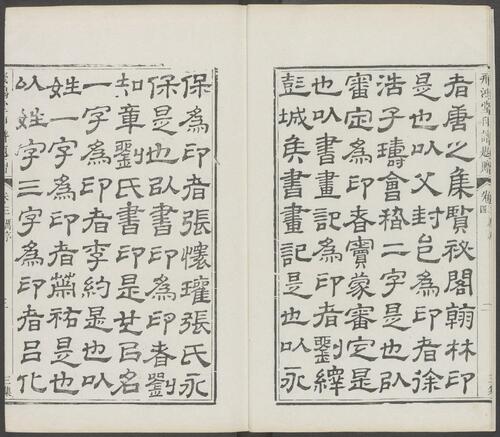 飛鴻堂印譜
者唐之集賢祕閣翰林印
是也以父封邑為印者徐
浩子璹會稽二字是也以
審定為印者竇蒙審定是
也以書畫記為印者劉繹
彭城矦書畫記是也以永
保為印者張懷瓘張氏永
保是也以書印為印者劉
知章劉氏書印是也以名
一字為印者李約是也以
姓一字為印者蕭祐是也
以姓字三字為印者呂化
三集